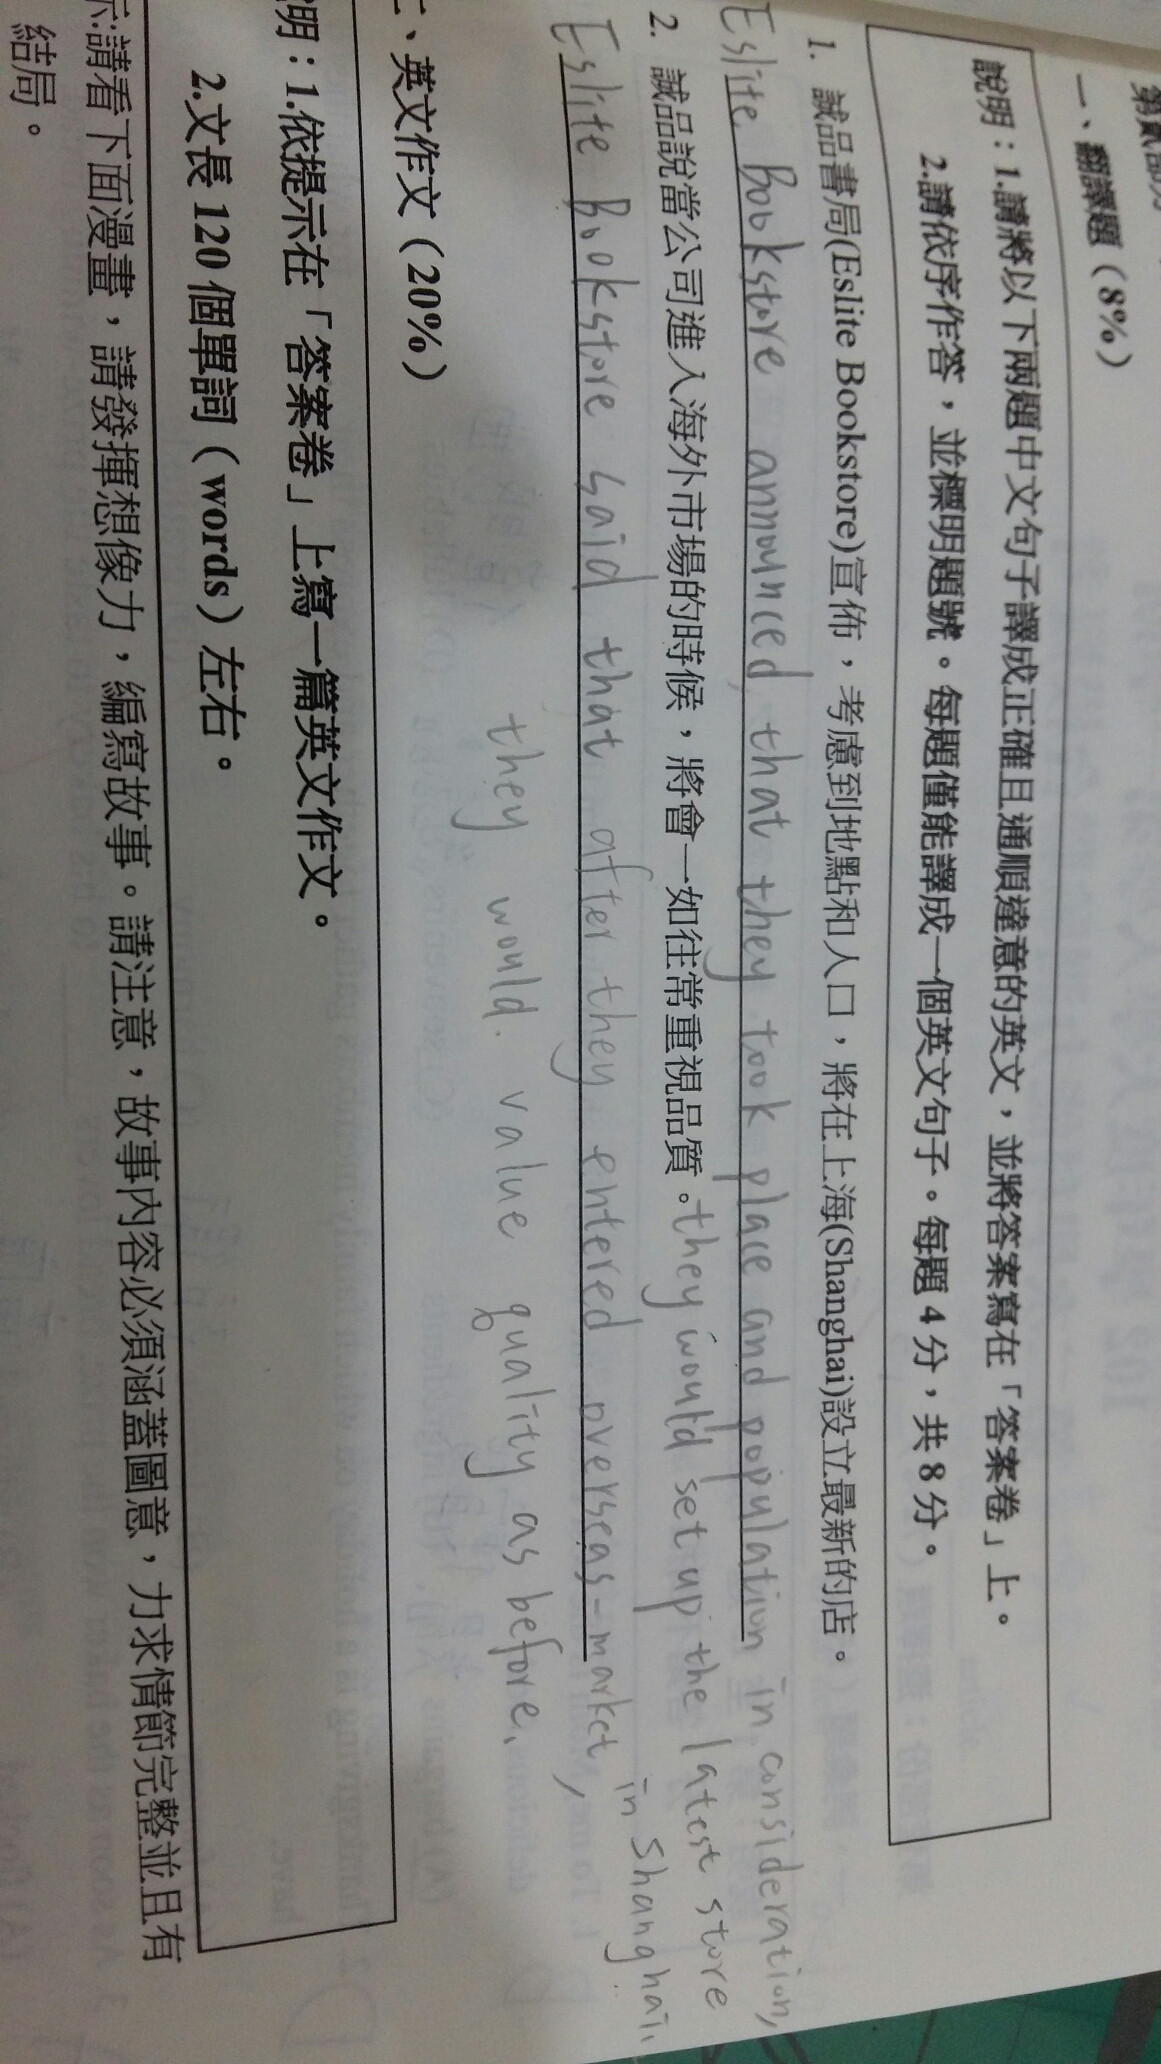 第貳部分
一、翻譯題（8%）
說明：1.請將以下兩題中文句子譯成正確且通順達意的英文，並將答案寫在「答案卷」上。
2.請依序作答，並標明題號。每題僅能譯成一個英文句子。每題 4 分，共 8 分。
1. 誠品書局(Eslite Bookstore)宣佈，考慮到地點和人口，將在上海(Shanghai)設立最新的店。
Eslite Bookstore announced that they took place and population in consideration,
they would set up the latest store
in Shanghai.
2. 誠品說當公司進入海外市場的時候，將會一如往常重視品質。
Eslite Bookstore said that after they entered overseas-market,
they would value quality as before.
二、英文作文（20%）
明：1.依提示在「答案卷」上寫一篇英文作文。
2.文長 120 個單詞（words）左右。
示:請看下面漫畫，請發揮想像力，編寫故事。請注意，故事內容必須涵蓋圖意，力求情節完整並且有
結局。